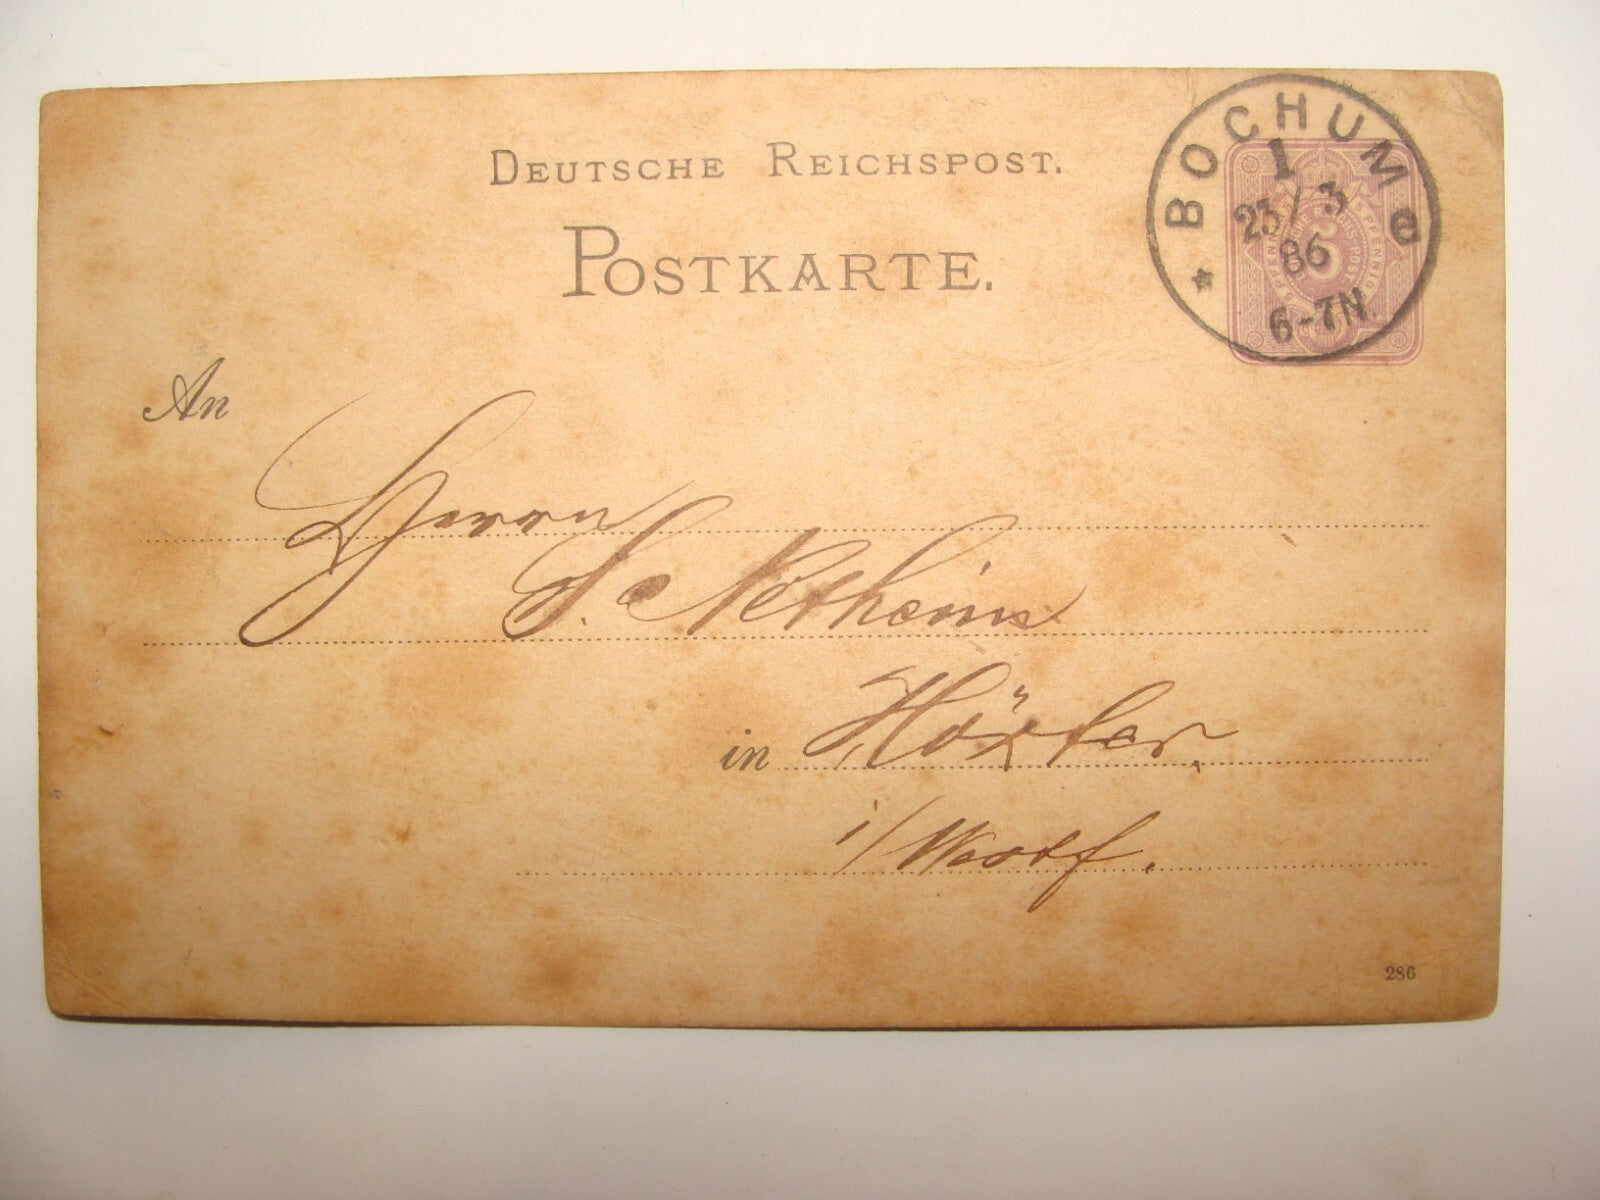 DEUTSCHE REICHSPOST.
POSTKARTE.
BOCHUM
1
23/3
86
6-7N.
* e
5 PFENNIG
An
Herrn
S. Netheim
in Höxter,
i/Westf.
286